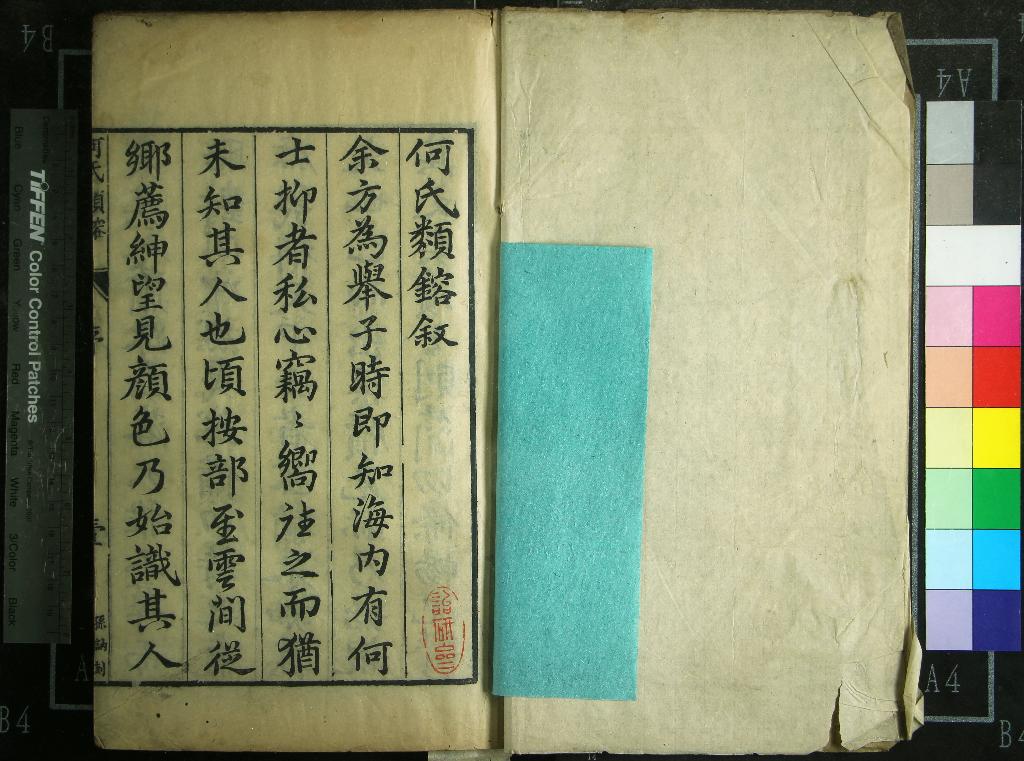 何氏類鎔敘
余方為舉子時即知海內有何
士抑者私心竊〻嚮往之而猶
未知其人也頃按部至雲間從
鄉薦紳望見顏色乃始識其人
何氏類鎔
序
壹
TIFFEN Color Control Patches
Blue Cyan Green Yellow Red Magenta White 3/Color Black
B4
A4
A4
B4
B4